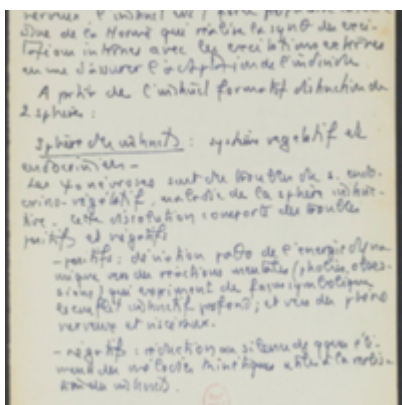 nerveux. L'instinct est
Sine de la Norme qui réalise la synth des exci-
tations internes avec les excitations externes
en vue d'assurer l'adaptation de l'individu
A partir de l'instinct formatif distinction de
2 sphères :
Sphère des instincts : système végétatif et
endocrinien -
Les névroses sont des troubles du s. endo-
crino-végétatif, maladie de la sphère instinc-
tive. Cette dissolution comporte des troubles
positifs et négatifs
- positifs : déviation patho de l'énergie dyna-
mique vers des réactions mentales (phobies, obses-
sions) qui expriment de façon symbolique
le conflit instinctif profond ; et vers des phéno
nerveux et viscéraux.
- négatifs : réduction au silence de
des mélodies kinétiques utiles à la réalisa-
tion des instincts.